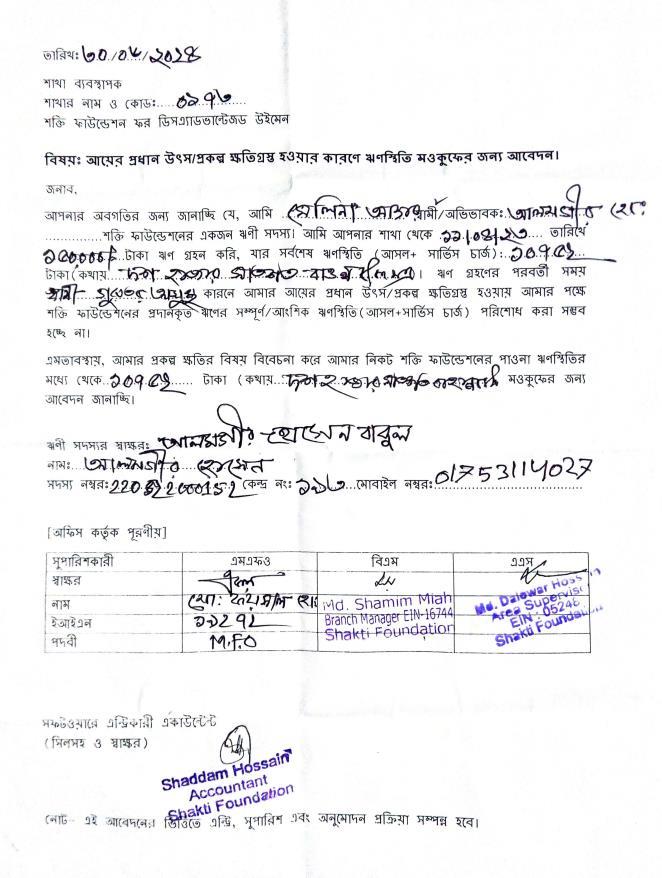 তারিখ: ৩০/০৪/২০২৪
শাখা ব্যবস্থাপক
শাখার নাম ও কোড:.....
শক্তি ফাউন্ডেশন ফর ডিসএ্যাডভান্টেজড উইমেন
বিষয়: আয়ের প্রধান উৎস/প্রকল্প ক্ষতিগ্রস্থ হওয়ার কারণে ঋণস্থিতি মওকুফের জন্য আবেদন।
জনাব,
আপনার অবগতির জন্য জানাচ্ছি যে, আমি সেলিনা আক্তার স্বামী/অভিভাবক: আলমগীর হোঃ
.............শক্তি ফাউন্ডেশনের একজন ঋণী সদস্য। আমি আপনার শাখা থেকে তারিখে
টাকা ঋণ গ্রহন করি, যার সর্বশেষ ঋণস্থিতি (আসল+ সার্ভিস চার্জ): ১০৭৫২
টাকা(কথায় দশ হাজার সাতশত বাওন্ন)। ঋণ গ্রহণের পরবর্তী সময়
কারনে আমার আয়ের প্রধান উৎস/প্রকল্প ক্ষতিগ্রস্ত হওয়ায় আমার পক্ষে
শক্তি ফাউন্ডেশনের প্রদানকৃত ঋণের সম্পূর্ণ/আংশিক ঋণস্থিতি(আসল+সার্ভিস চার্জ) পরিশোধ করা সম্ভব
হচ্ছে না।
এমতাবস্থায়, আমার প্রকল্প ক্ষতির বিষয় বিবেচনা করে আমার নিকট শক্তি ফাউন্ডেশনের পাওনা ঋণস্থিতির
মধ্যে থেকে ১০৭৫২ টাকা (কথায় দশ হাজার সাতশত মওকুফের জন্য
আবেদন জানাচ্ছি।
ঋণী সদস্যর স্বাক্ষর: আলমগীর হোসেন বাবুল
নাম: আলমগীর হোসেন
সদস্য নম্বর: কেন্দ্র নং: মোবাইল নম্বর: 01753114027
[অফিস কর্তৃক পূরণীয়]
সুপারিশকারী এমএফও বিএম এএস
স্বাক্ষর
নাম মো: ফয়সাল হোঃ Md. Shamim Miah Md. Dalowar Hossain
ইআইএন ১১২৭২ Branch Manager EIN-16744 Area Supervisor EIN : 05248
পদবী M.F.O Shakti Foundation Shakti Foundation
সফটওয়ারে এন্ট্রিকারী একাউন্টেন্ট
(সিলসহ ও স্বাক্ষর)
Shaddam Hossain
Accountant
Shakti Foundation
নোট- এই আবেদনের ভিত্তিতে এন্ট্রি, সুপারিশ এবং অনুমোদন প্রক্রিয়া সম্পন্ন হবে।